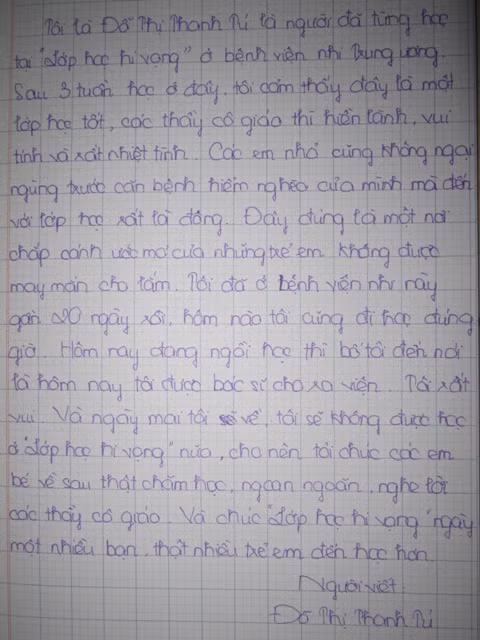 Tôi là Đỗ Thị Thanh Tú là người đã từng học
tại "Lớp học hi vọng" ở bệnh viện nhi Trung ương.
Sau 3 tuần học ở đây, tôi cảm thấy đây là một
lớp học tốt, các thầy cô giáo thì hiền lành, vui
tính và rất nhiệt tình. Các em nhỏ cũng không ngại
ngùng trước căn bệnh hiểm nghèo của mình mà đến
với lớp học rất là đông. Đây đúng là một nơi
chắp cánh ước mơ của những trẻ em không được
may mắn cho lắm. Tôi đã ở bệnh viện như này
gần 20 ngày rồi, hôm nào tôi cũng đi học đúng
giờ. Hôm nay đang ngồi học thì bố tôi đến nói
là hôm nay tôi được bác sĩ cho ra viện. Tôi rất
vui. Và ngày mai tôi về, tôi sẽ không được học
ở "Lớp học hi vọng" nữa, cho nên tôi chúc các em
bé về sau thật chăm học, ngoan ngoãn, nghe lời
các thầy cô giáo. Và chúc "Lớp học hi vọng" ngày
một nhiều bạn, thật nhiều trẻ em đến học hơn.
Người viết:
Đỗ Thị Thanh Tú